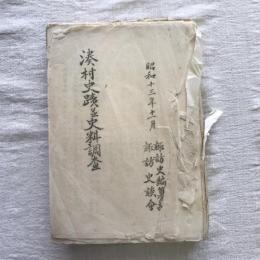 昭和十三年十一月
諏訪史編纂会
諏訪史談会
湊村史蹟並史料調査